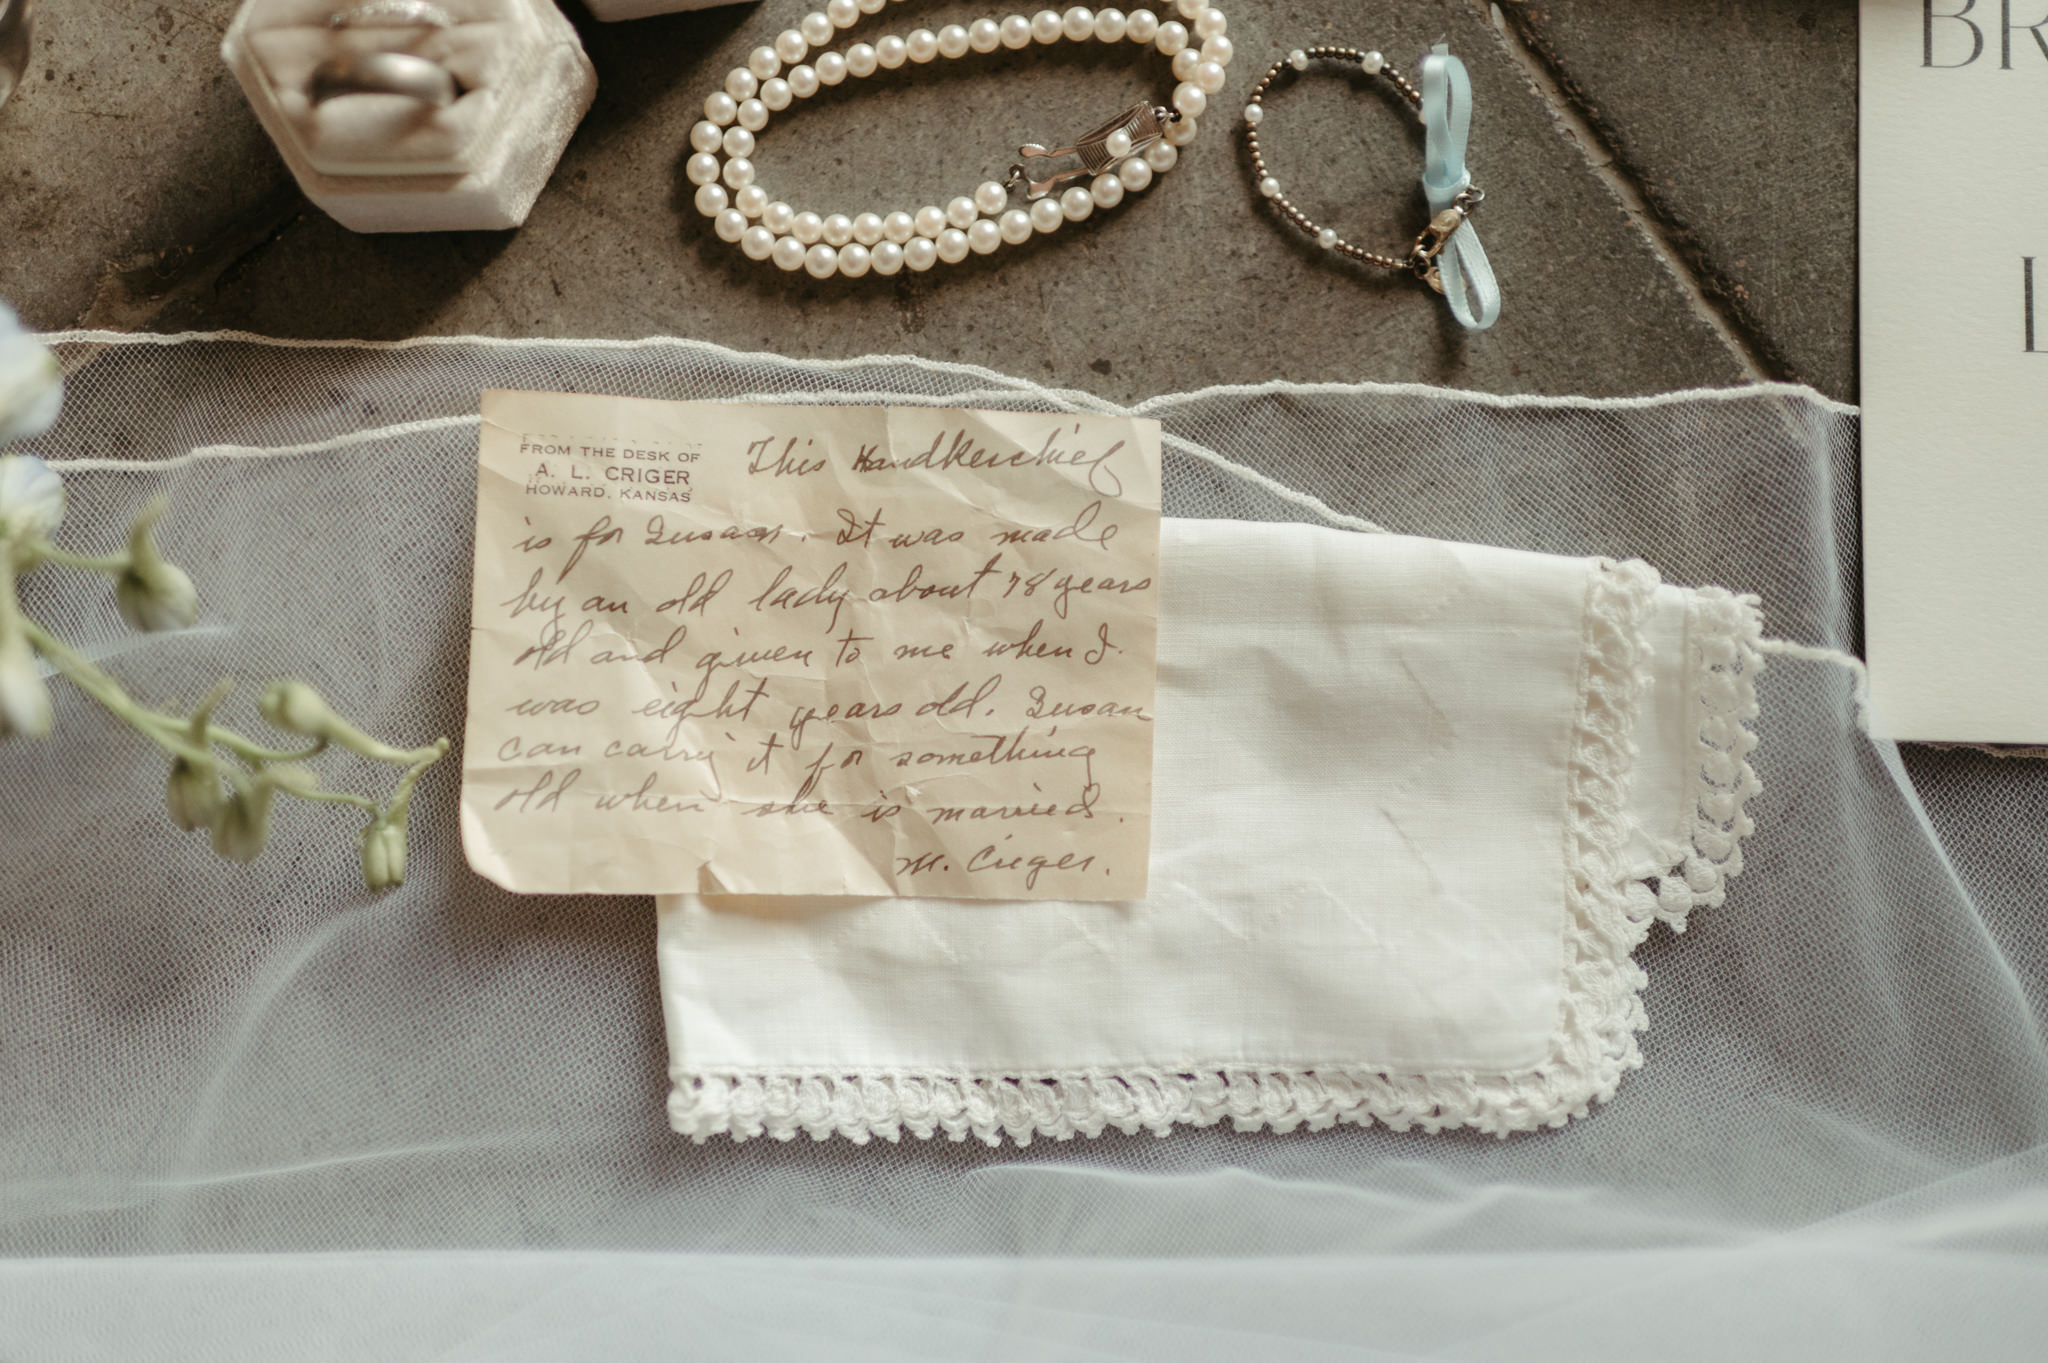 FROM THE DESK OF
A. L. CRIGER
HOWARD, KANSAS
This Handkerchief
is for Susan. It was made
by an old lady about 78 years
old and given to me when I
was eight years old. Susan
can carry it for something
old when she is married.
M. Criger.
BR
L